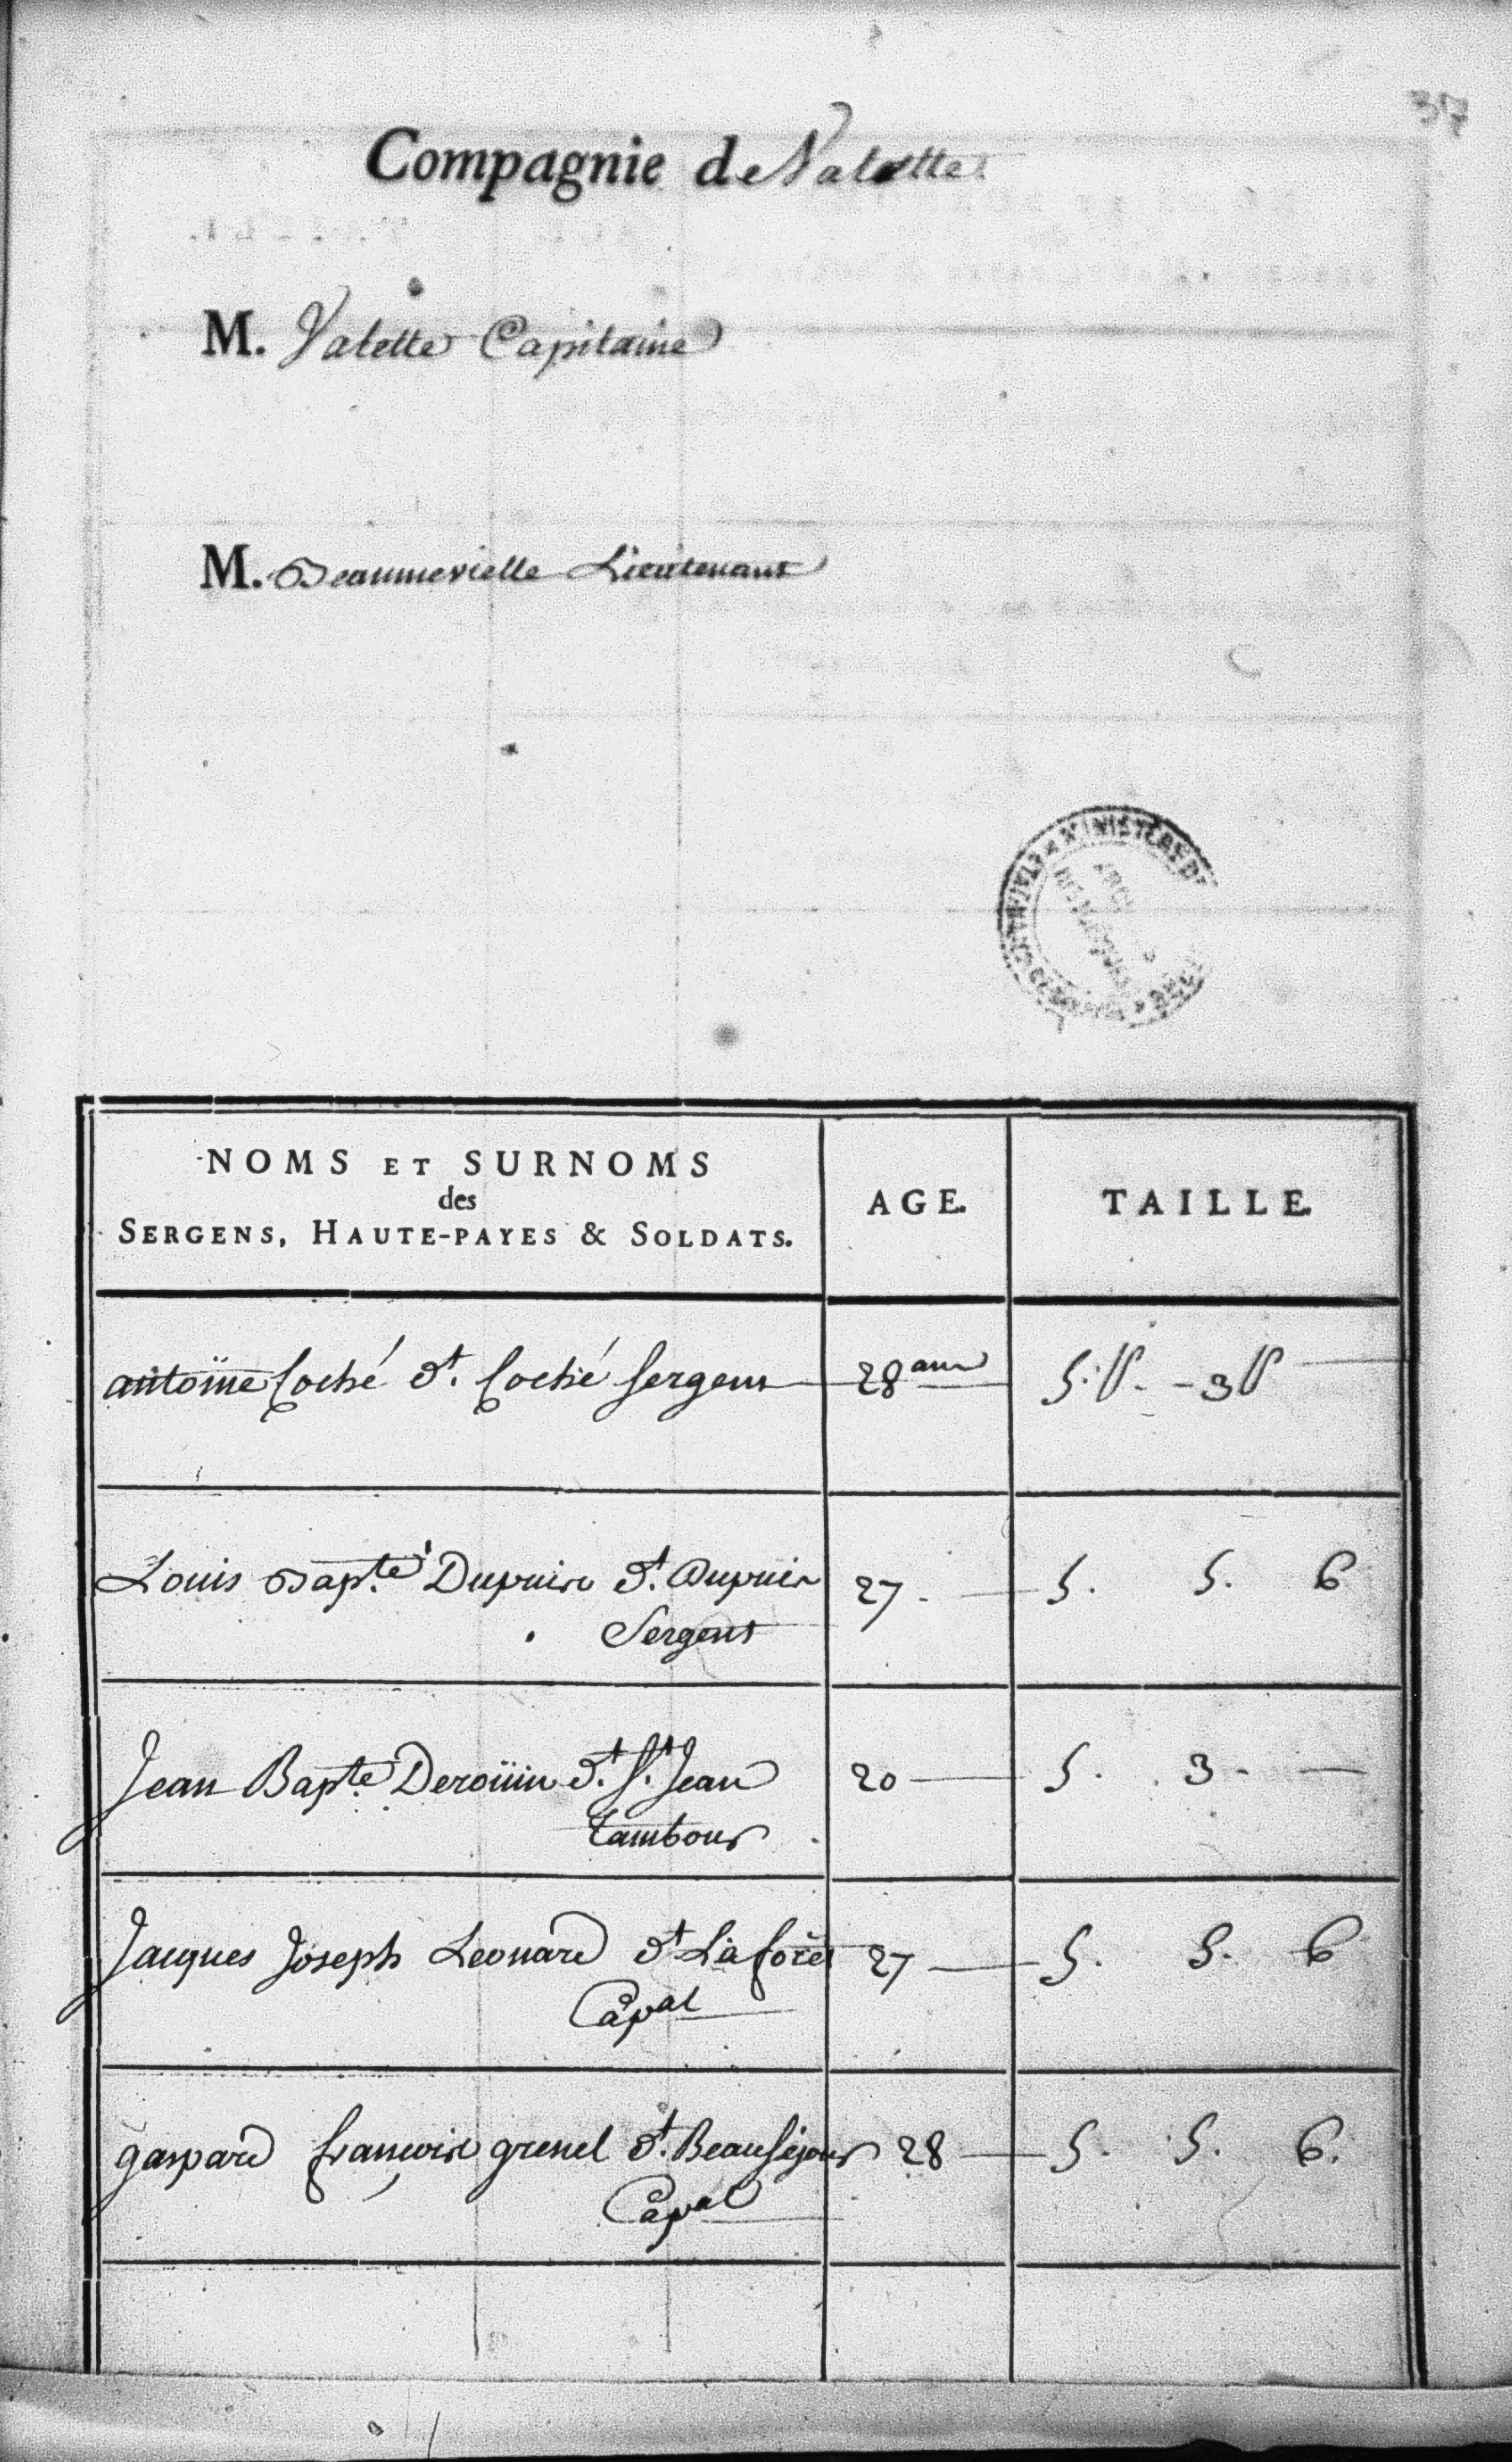 317
Compagnie de Valette
M. Valette Capitaine
M. Beaumevielle Lieutenant
MINISTÈRE DE
NOMS ET SURNOMS
des
SERGENS, HAUTE-PAYES & SOLDATS.
AGE.
TAILLE.
antoine Coché dt. Coché Sergent 28 ans 5. P. - 3 P
Louis Bapte. Dupuis dt. Dupuis 27. 5. 5. 6
Sergent
Jean Bapte. Derouin dt. St. Jean 20 5. 3.
tambour
Jacques Joseph Leonard dt Laforêt 27 5. 5. 6
Capal
gaspard françois grenel dt. Beauséjour 28 5. 5. 6.
Capal